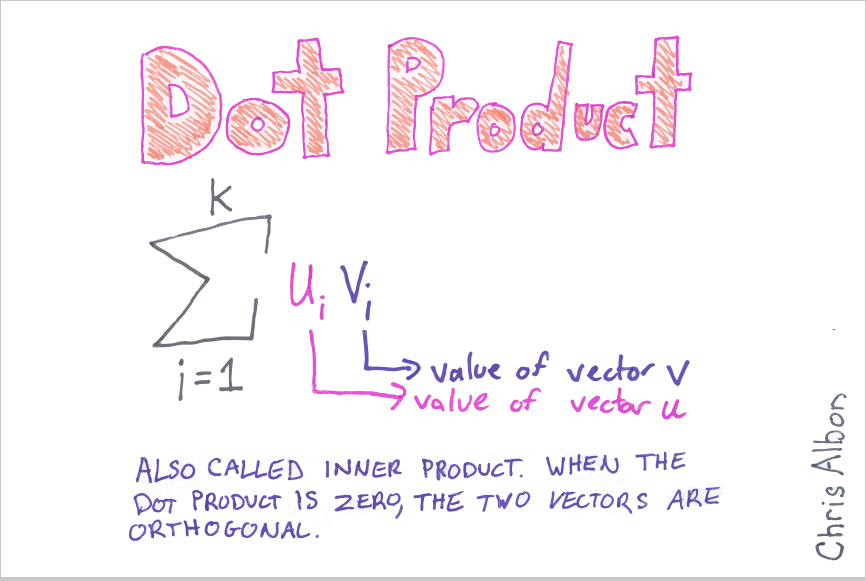 Dot Product
k
∑ uᵢ vᵢ
i=1
value of vector v
value of vector u
ALSO CALLED INNER PRODUCT. WHEN THE
DOT PRODUCT IS ZERO, THE TWO VECTORS ARE
ORTHOGONAL.
Chris Albon